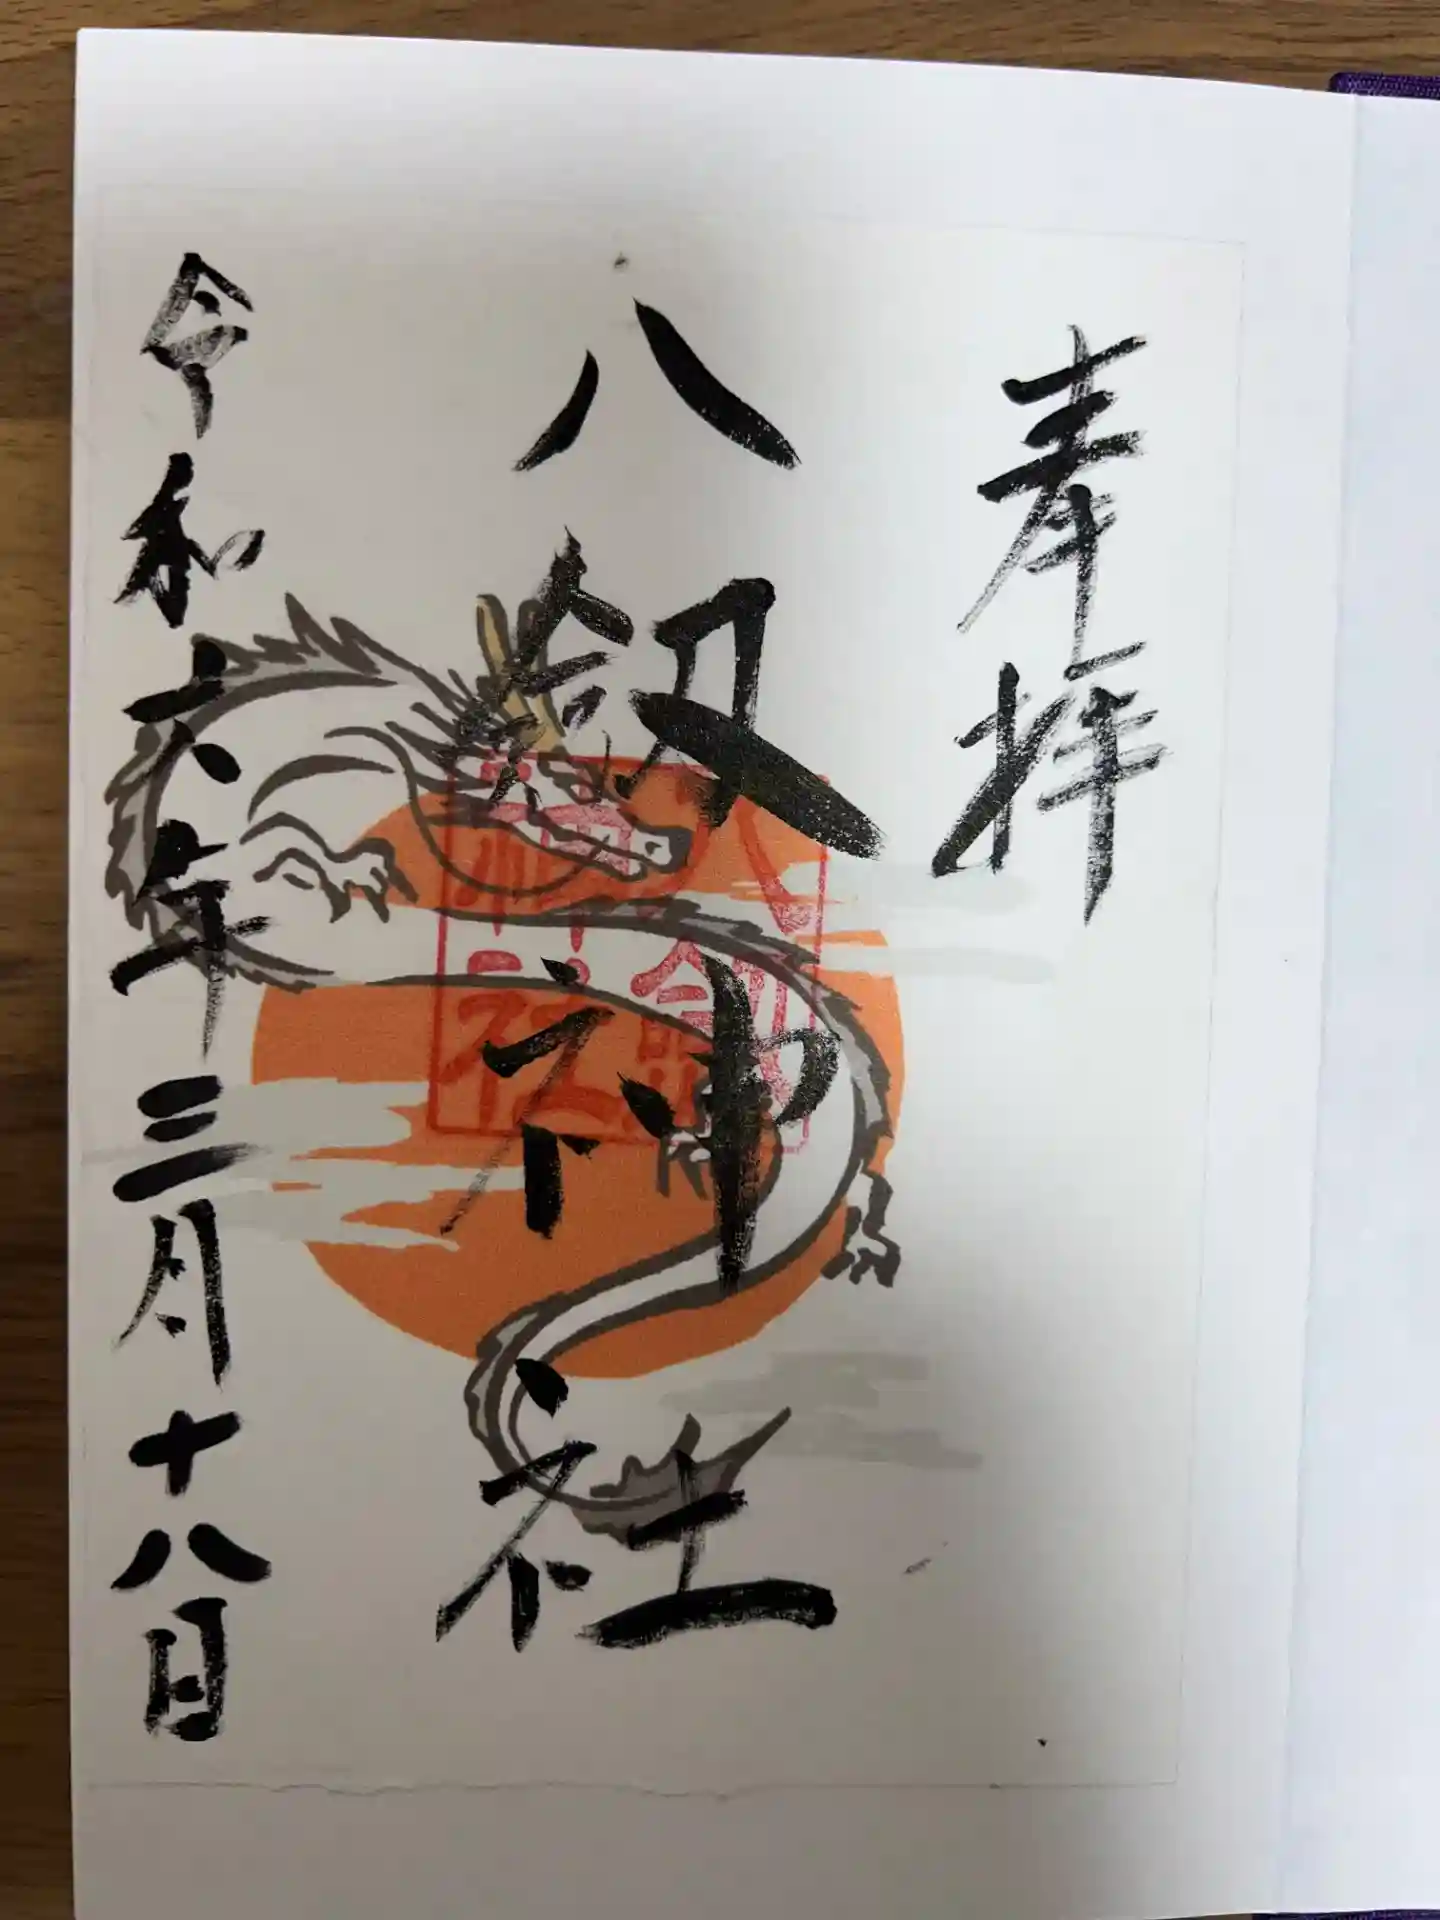 奉拝
八剱神社
八劔
神社
令和六年三月十八日